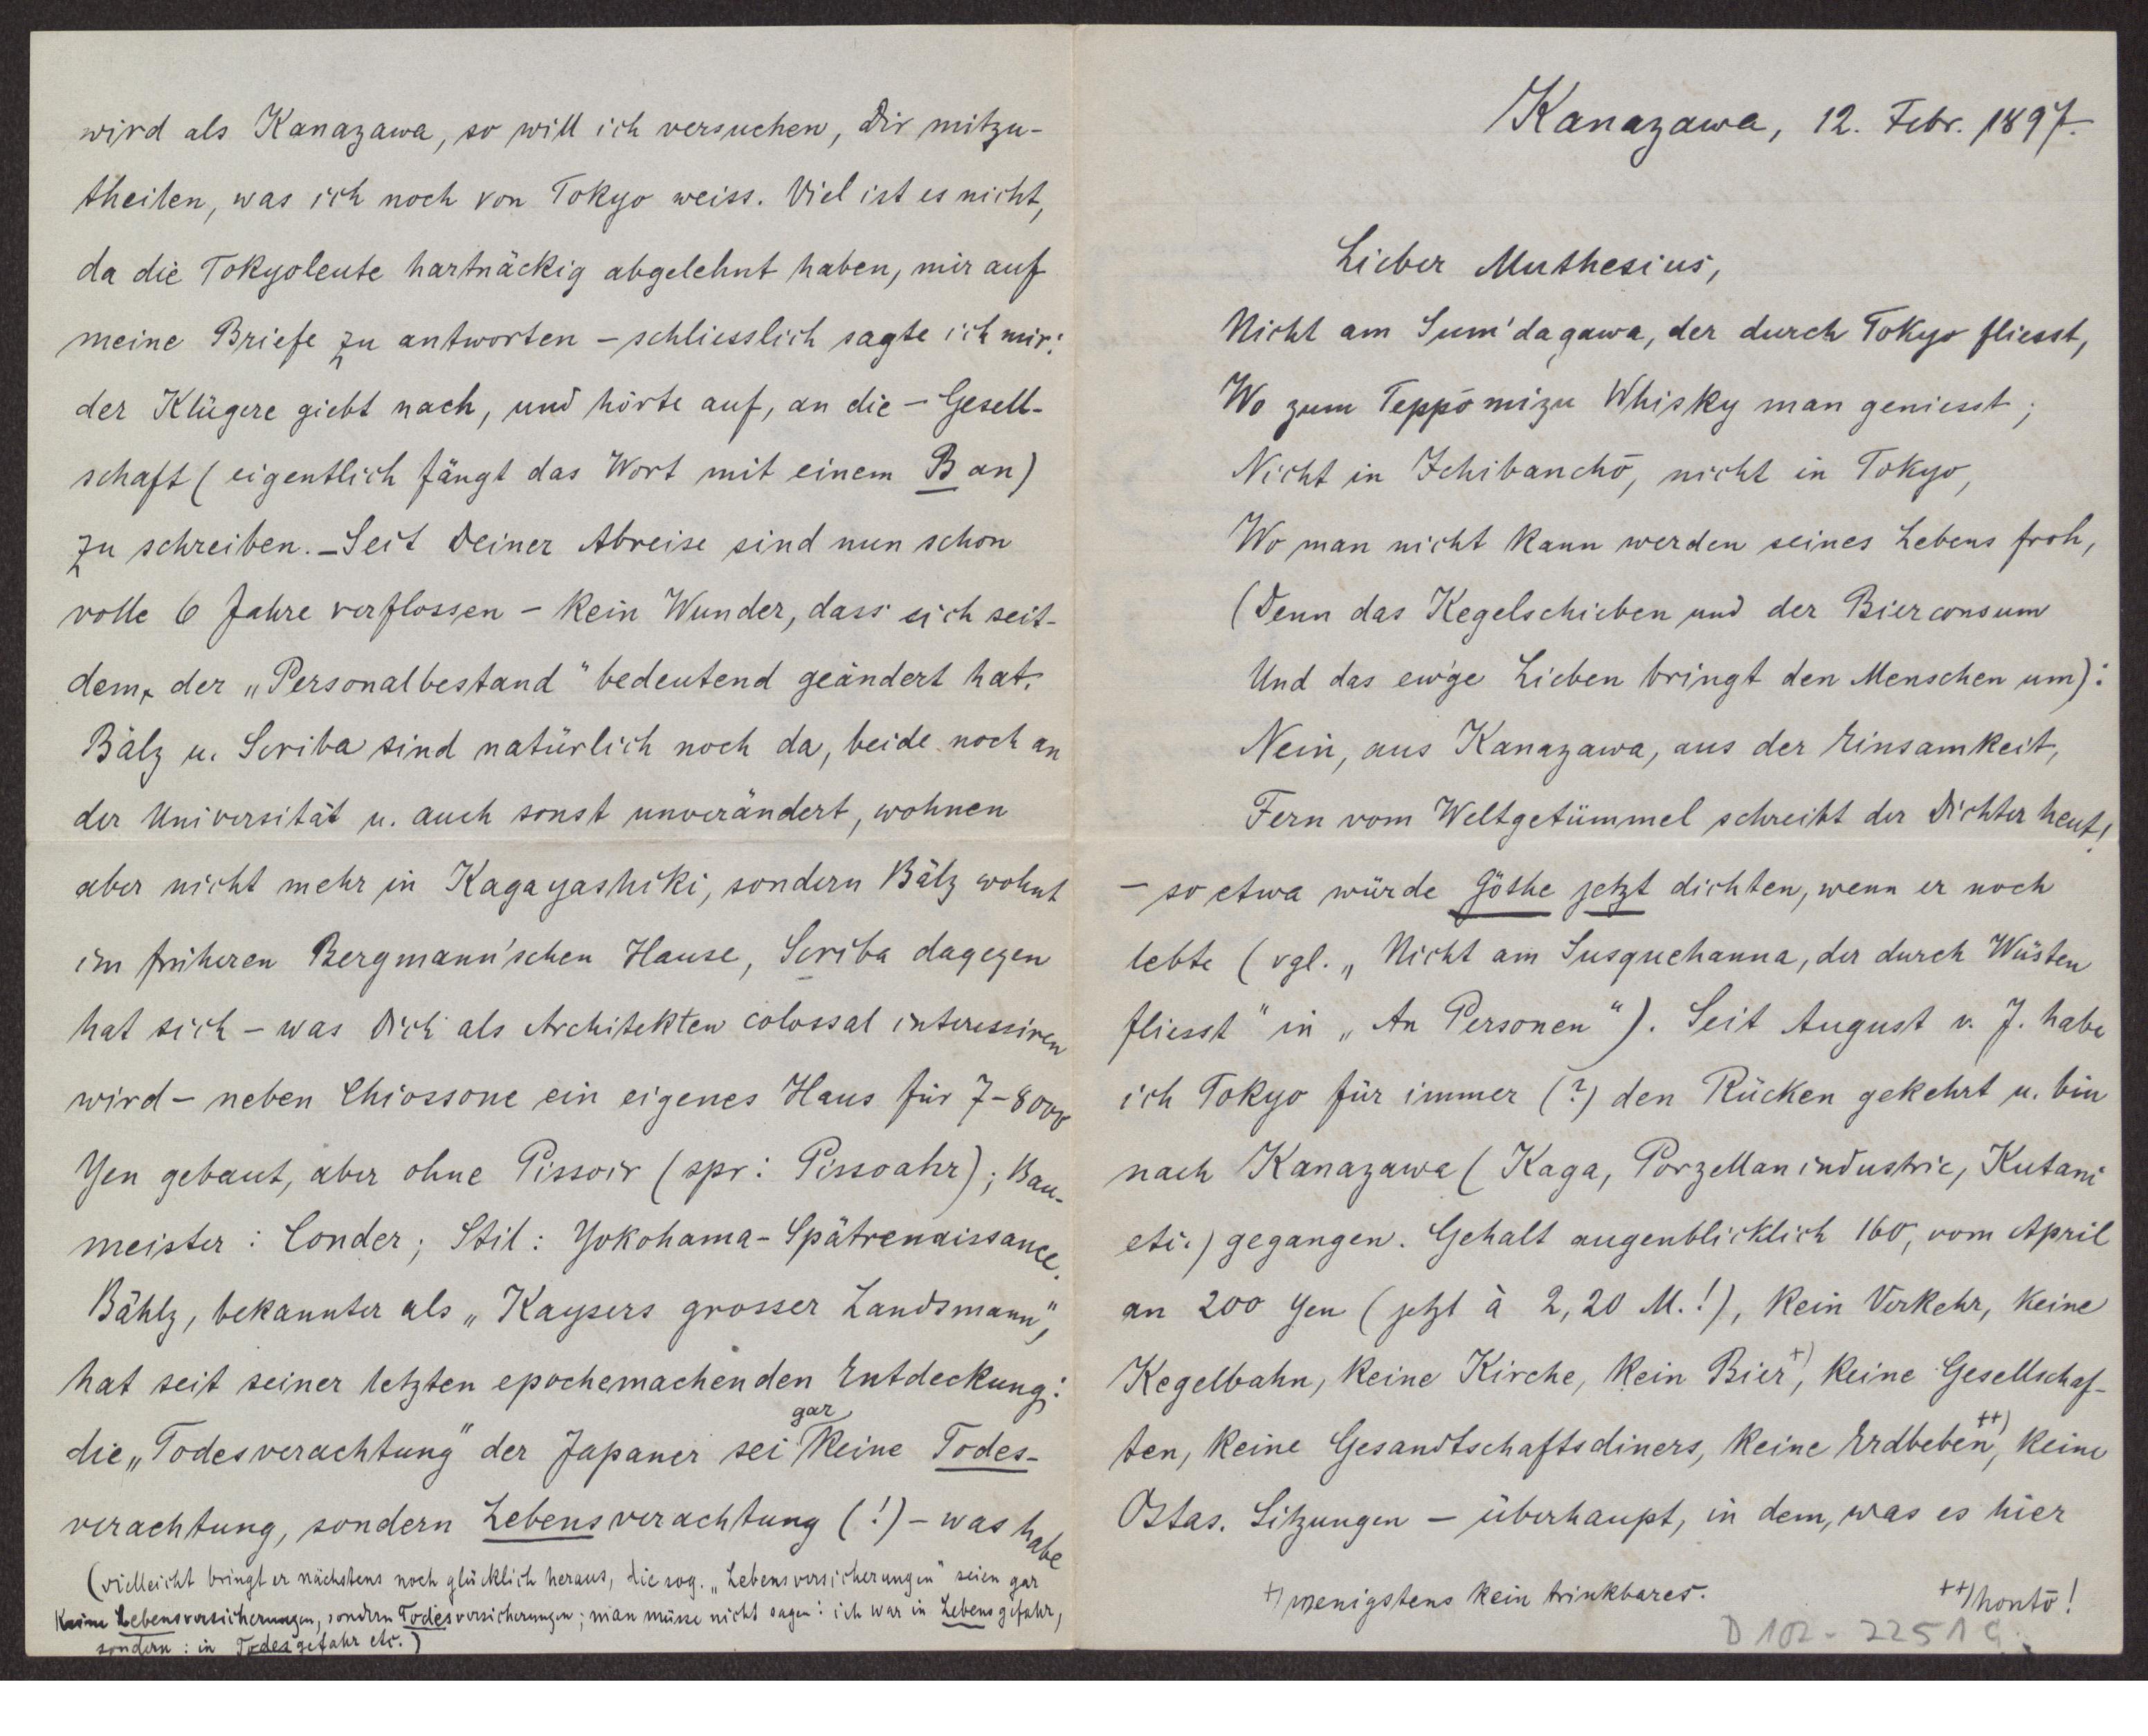 Kanazawa, 12. Febr. 1897.
Lieber Muthesius,
Nicht am Sum'dagawa, der durch Tokyo fliesst,
Wo zum Teppōmizu Whisky man geniesst;
Nicht in Ichibanchō, nicht in Tokyo,
Wo man nicht kann werden seines Lebens froh,
(Denn das Kegelschieben und der Bierconsum
Und das ew'ge Lieben bringt den Menschen um):
Nein, aus Kanazawa, aus der Einsamkeit,
Fern vom Weltgetümmel schreibt der Dichter heut!
– so etwa würde Göthe jetzt dichten, wenn er noch
lebte (vgl. „Nicht am Susquehanna, der durch Wüsten
fliesst" in „An Personen"). Seit August v. J. habe
ich Tokyo für immer (?) den Rücken gekehrt u. bin
nach Kanazawa (Kaga, Porzellanindustrie, Kutani
etc.) gegangen. Gehalt augenblicklich 160, vom April
an 200 Yen (jetzt à 2,20 M.!), kein Verkehr, keine
Kegelbahn, keine Kirche, kein Bier+), keine Gesellschaf-
ten, keine Gesandtschaftsdiners, keine Erdbeben++), keine
Ostas. Sitzungen – überhaupt, in dem, was es hier
+) wenigstens kein trinkbares.
++) hontō!
D 102-2251 G
wird als Kanazawa, so will ich versuchen, Dir mitzu-
theilen, was ich noch von Tokyo weiss. Viel ist es nicht,
da die Tokyoleute hartnäckig abgelehnt haben, mir auf
meine Briefe zu antworten – schliesslich sagte ich mir:
der Klügere giebt nach, und hörte auf, an die – Gesell-
schaft (eigentlich fängt das Wort mit einem B an)
zu schreiben. – Seit Deiner Abreise sind nun schon
volle 6 Jahre verflossen – kein Wunder, dass sich seit-
dem der „Personalbestand" bedeutend geändert hat.
Bälz u. Scriba sind natürlich noch da, beide noch an
der Universität u. auch sonst unverändert, wohnen
aber nicht mehr in Kagayashiki, sondern Bälz wohnt
im früheren Bergmann'schen Hause, Scriba dagegen
hat sich – was Dich als Architekten colossal interessiren
wird – neben Chiossone ein eigenes Haus für 7–8000
Yen gebaut, aber ohne Pissoir (spr: Pissoahr); Bau-
meister: Conder; Stil: Yokohama-Spätrenaissance.
Bählz, bekannter als „Kaysers grosser Landsmann",
hat seit seiner letzten epochemachenden Entdeckung:
die „Todesverachtung" der Japaner sei gar keine Todes-
verachtung, sondern Lebensverachtung (!) – was habe
(vielleicht bringt er nächstens noch glücklich heraus, die sog. „Lebensversicherungen" seien gar
keine Lebensversicherungen, sondern Todesversicherungen; man müsse nicht sagen: ich war in Lebensgefahr,
sondern: in Todesgefahr etc.)